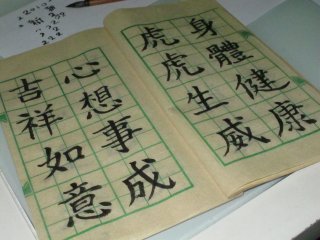 身體健康
虎虎生威
心想事成
吉祥如意